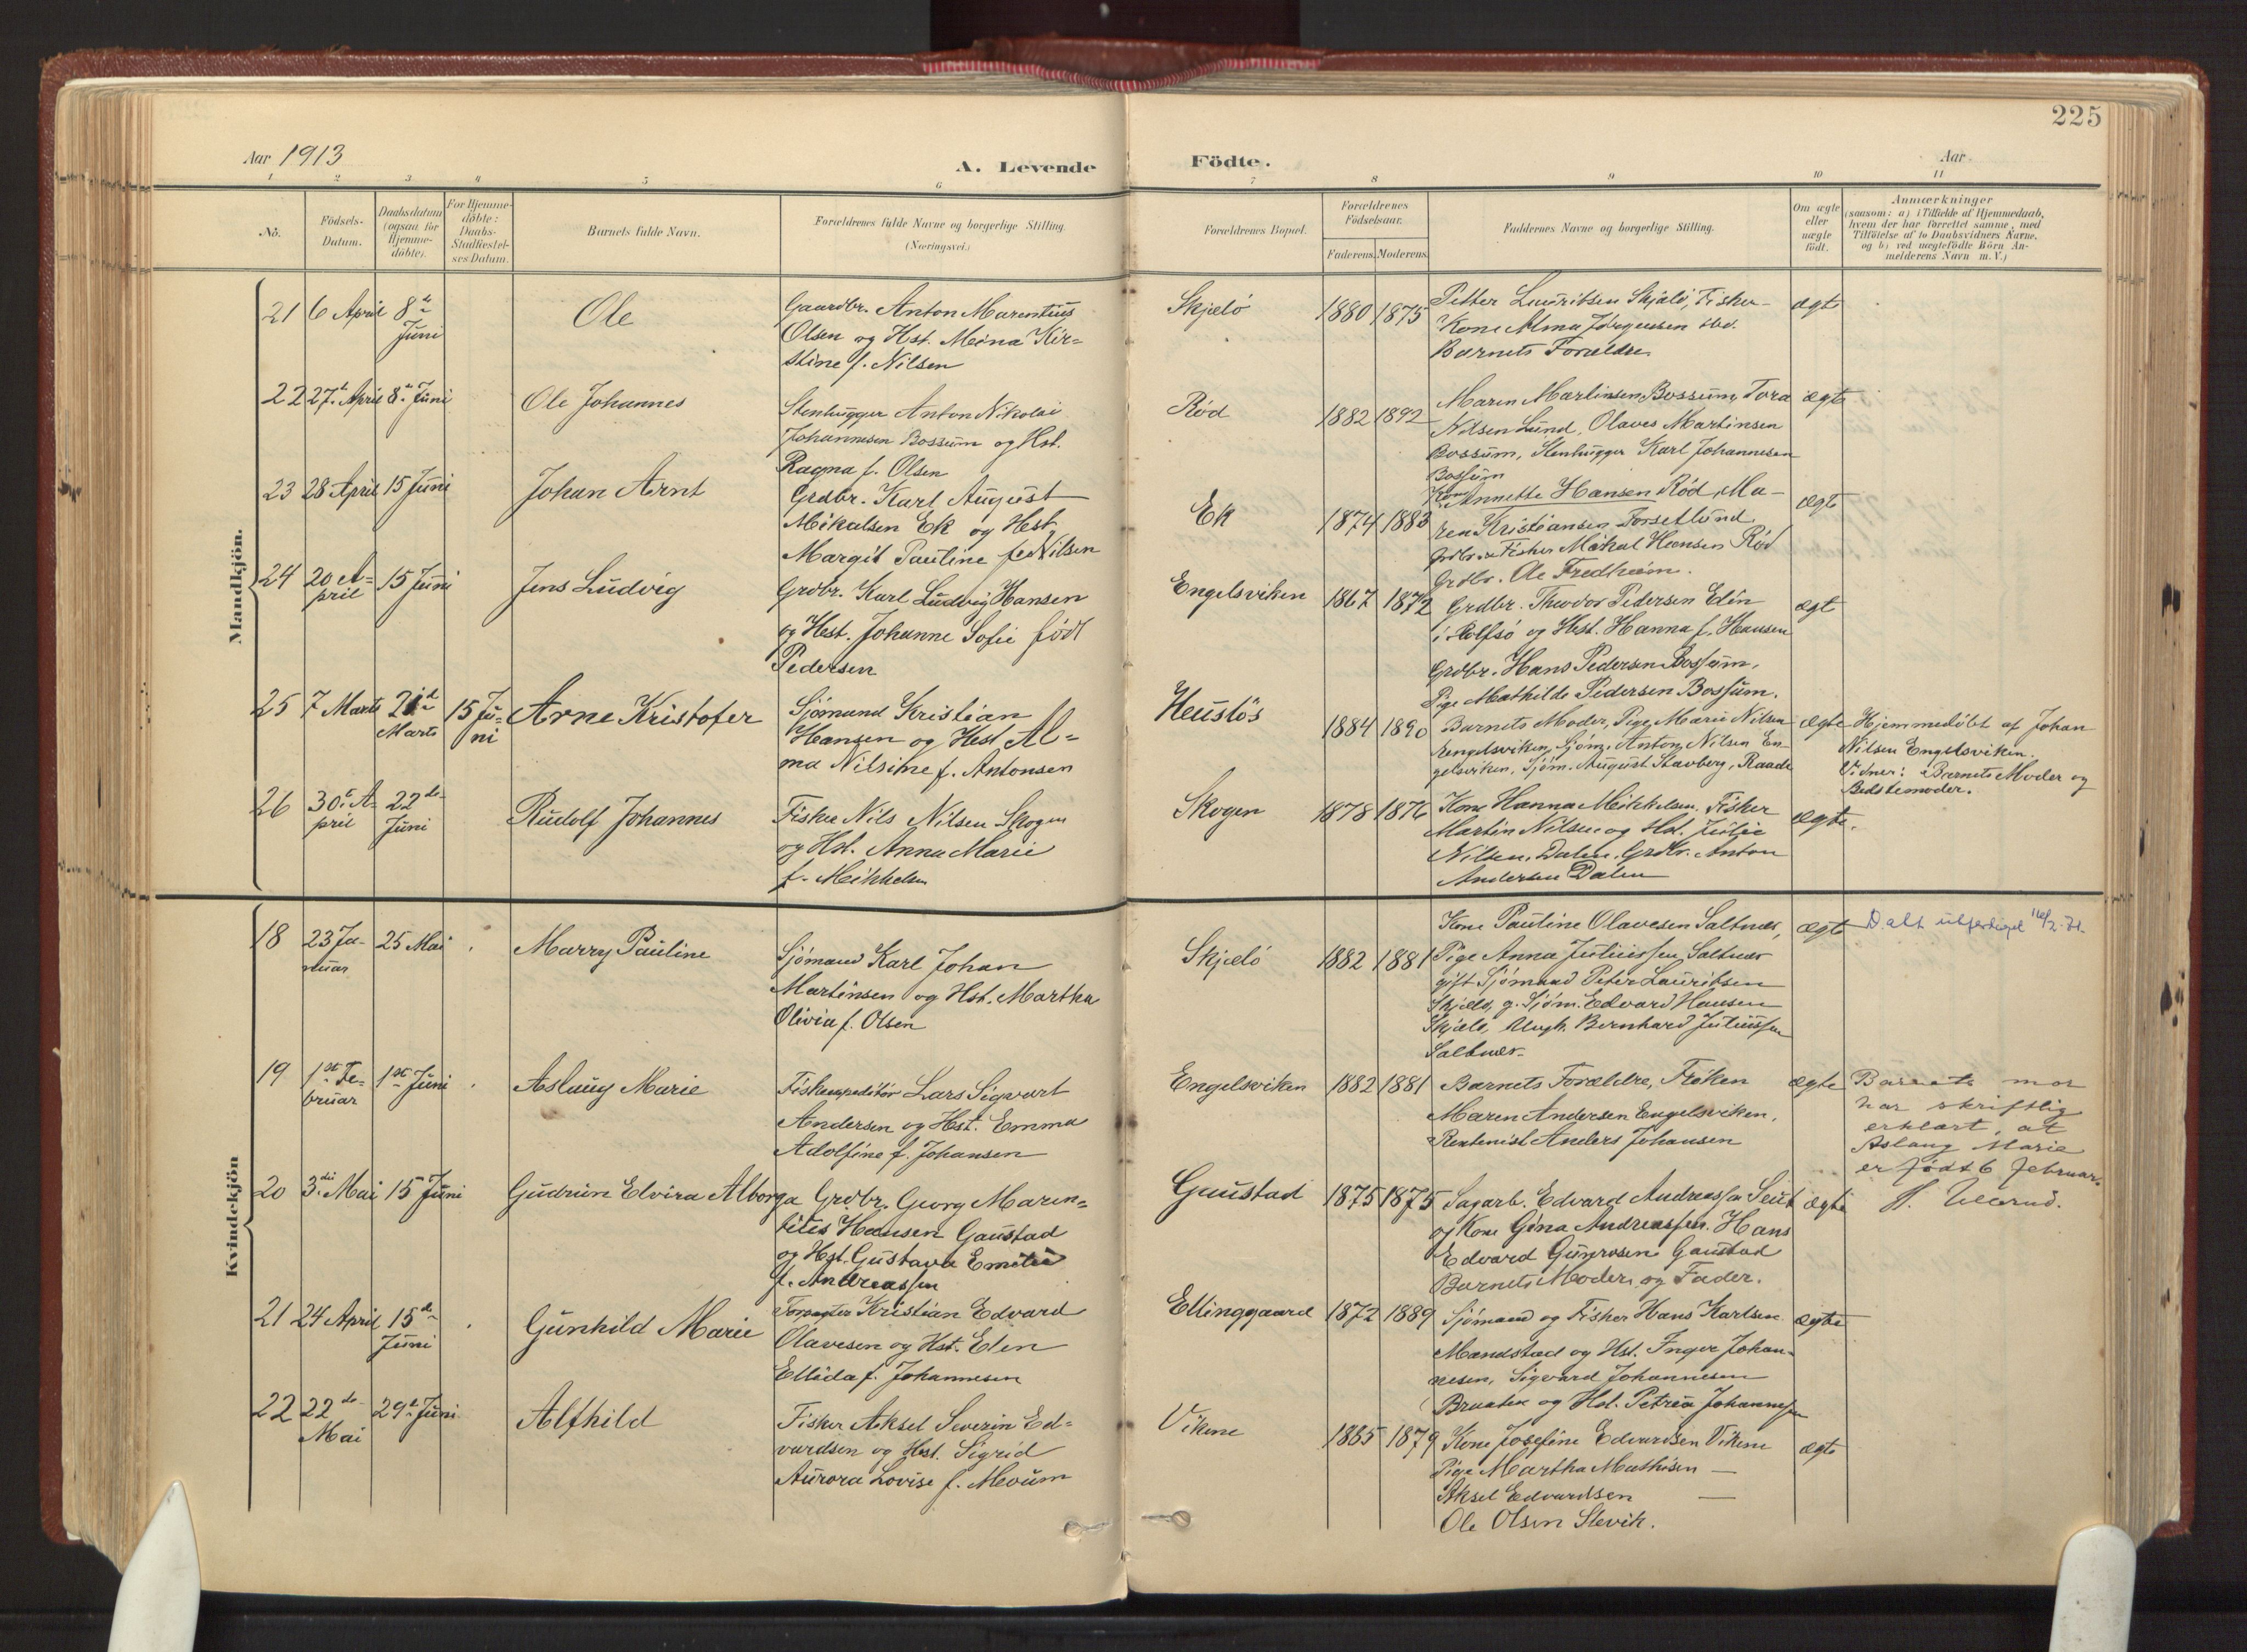 225
Aar 1913
A. Levende Födte.
Aar
1 2 3 4 5 6 7 8 9 10 11
No.
Födsels-Datum.
Daabsdatum (ogsaa for Hjemme-döbte).
For Hjemme-döbte: Daabs-Stadfæstel-ses-Datum.
Barnets fulde Navn.
Forældrenes fulde Navne og borgerlige Stilling. (Næringsvei.)
Forældrenes Bopæl.
Forældrenes Födselsaar.
Faderens. Moderens.
Faddernes Navne og borgerlige Stilling.
Om ægte eller uægte födt.
Anmærkninger
(saasom: a) i Tilfælde af Hjemmedaab,
hvem der har forrettet samme, med
Tilföielse af to Daabsvidners Navne,
og b) ved uægtefödte Börn An-
melderens Navn m. V.)
Mandkjön.
21 6 April 8de Juni
Ole
Gaardbr. Anton Marentius
Olsen og Hst. Mina Kir-
stine f. Nilsen
Skjælö 1880 1875
Petter Lauritsen Skjælö, Fisker
Kone Alma Jörgensen sted.
Barnets Forældre
ægte
22 27de April 8de Juni
Ole Johannes
Stenhugger Anton Nikolai
Johannesen Bossum og Hst.
Ragna f. Olsen
Röd 1882 1892
Maren Martinsen Bossum, Tora
Nilsen Lund, Olaves Martinsen
Bossum, Stenhugger Karl Johannesen
Bossum
ægte
23 28 April 15 Juni
Johan Arnt
Grdbr. Karl August
Mikalsen Ek og Hst.
Margit Pauline fød Nilsen
Ek 1874 1883
Kone Annette Hansen Röd, Ma-
ren Kristiansen Torsetlund
Grdbr. & Fisker Mikal Hansen Röd
Grdbr. Ole Fredheim.
ægte
24 20 A-pril 15 Juni
Jens Ludvig
Grdbr. Karl Ludvig Hansen
og Hst. Johanne Sofie født
Pedersen
Engelsviken 1867 1872
Grdbr. Theodor Pedersen Elin
i Rolfsö og Hst. Hanna f. Hansen
Grdbr. Hans Pedersen Bossum,
Pige Mathilde Pedersen Bossum.
ægte
25 7 Marts 21de Marts 15 Ju-ni
Arne Kristofer
Sjömand Kristian
Hansen og Hst. Al-
ma Nilsine f. Antonsen
Heuslös 1884 1890
Barnets Moder, Pige Marie Nilsen
Engelsviken, Sjöm. Anton Nilsen En-
gelsviken, Sjöm. August Stavberg, Raade
ægte
Hjemmedöbt af Johan
Nilsen Engelsviken.
Vidner: Barnets Moder og
Bedstemoder.
26 30te A-pril 22de Juni
Rudolf Johannes
Fisker Nils Nilsen Skogen
og Hst. Anna Marie
f. Mikkelsen
Skogen 1878 1876
Kone Hanna Mikkelsen, Fisker
Martin Nilsen og Hst. Julie
Nilsen, Dalen. Grdbr. Anton
Andersen Dalen
ægte.
Kvindekjön
18 23 Ja-nuar 25 Mai
Marry Pauline
Sjömand Karl Johan
Martinsen og Hst. Martha
Olivia f. Olsen
Skjælö 1882 1881
Kone Pauline Olavesen Saltnes,
Pige Anna Juliussen Saltnes
gift Sjömand Peter Lauritsen
Skjælö, g. Sjöm. Edvard Hansen
Skjælö, Ungk. Bernhard Juliussen
Saltnes
ægte
D. att utferdiget 16/2-71.
19 1ste Fe-bruar 1ste Juni
Aslaug Marie
Fiskeexpeditör Lars Sigvart
Andersen og Hst. Emma
Adolfine f. Johansen
Engelsviken 1882 1881
Barnets Forældre, Fröken
Maren Andersen Engelsviken,
Rentenist Anders Johansen
ægte
Barnets mor
har skriftlig
erklært, at
Aslaug Marie
er født 6 februar.
20 3die Mai 15 Juni
Gudrun Elvira Alborga
Grdbr. Georg Maren-
tius Hansen Gaustad
og Hst. Gustava Emilie
f. Andreassen
Gaustad 1875 1875
Sagarb. Edvard Andreassen Seut
og Kone Gina Andreassen. Hans
Edvard Gaustad
Barnets Moder og Fader.
ægte
21 24 April 15de Juni
Gunhild Marie
Forpagter Kristian Edvard
Olavesen og Hst. Elen
Ellida f. Johannesen
Ellinggaard 1872 1889
Sjömand og Fisker Hans Karlsen
Mandstad og Hst. Inger Johan-
nesen, Sigvard Johannesen
og Hst. Petrea Johannesen
ægte
22 22de Mai 29de Juni
Alfhild
Fisker Aksel Severin Ed-
vardsen og Hst. Sigrid
Aurora Lovise f. Mevum
Vikene 1865 1879
Kone Josefine Edvardsen Vikene
Pige Martha Mathisen —
Aksel Edvardsen —
Ole Olsen Slevik.
ægte